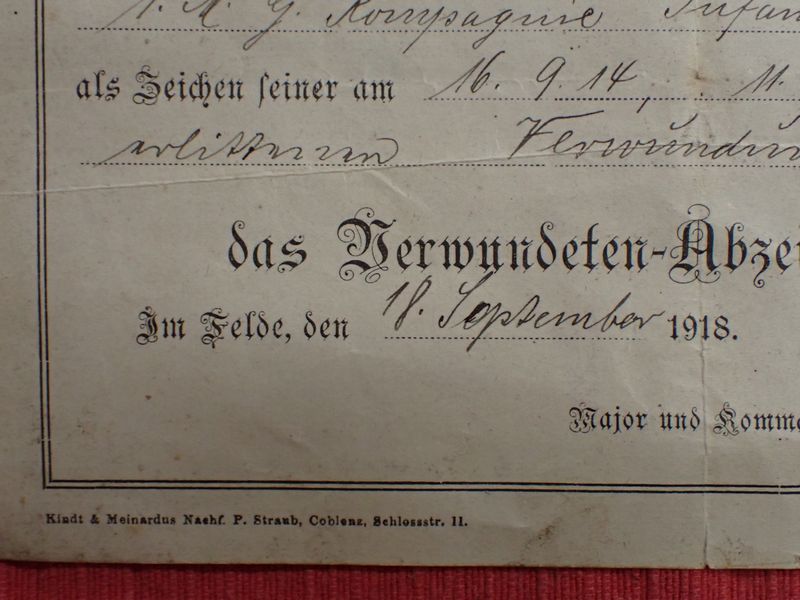 1. M. G. Kompagnie Infan
als Zeichen seiner am 16. 9. 14, 11.
erlittenen Verwundun
das Verwundeten-Abzei
Im Felde, den 18. September 1918.
Major und Komma
Kindt & Meinardus Nachf. P. Straub, Coblenz, Schlossstr. 11.